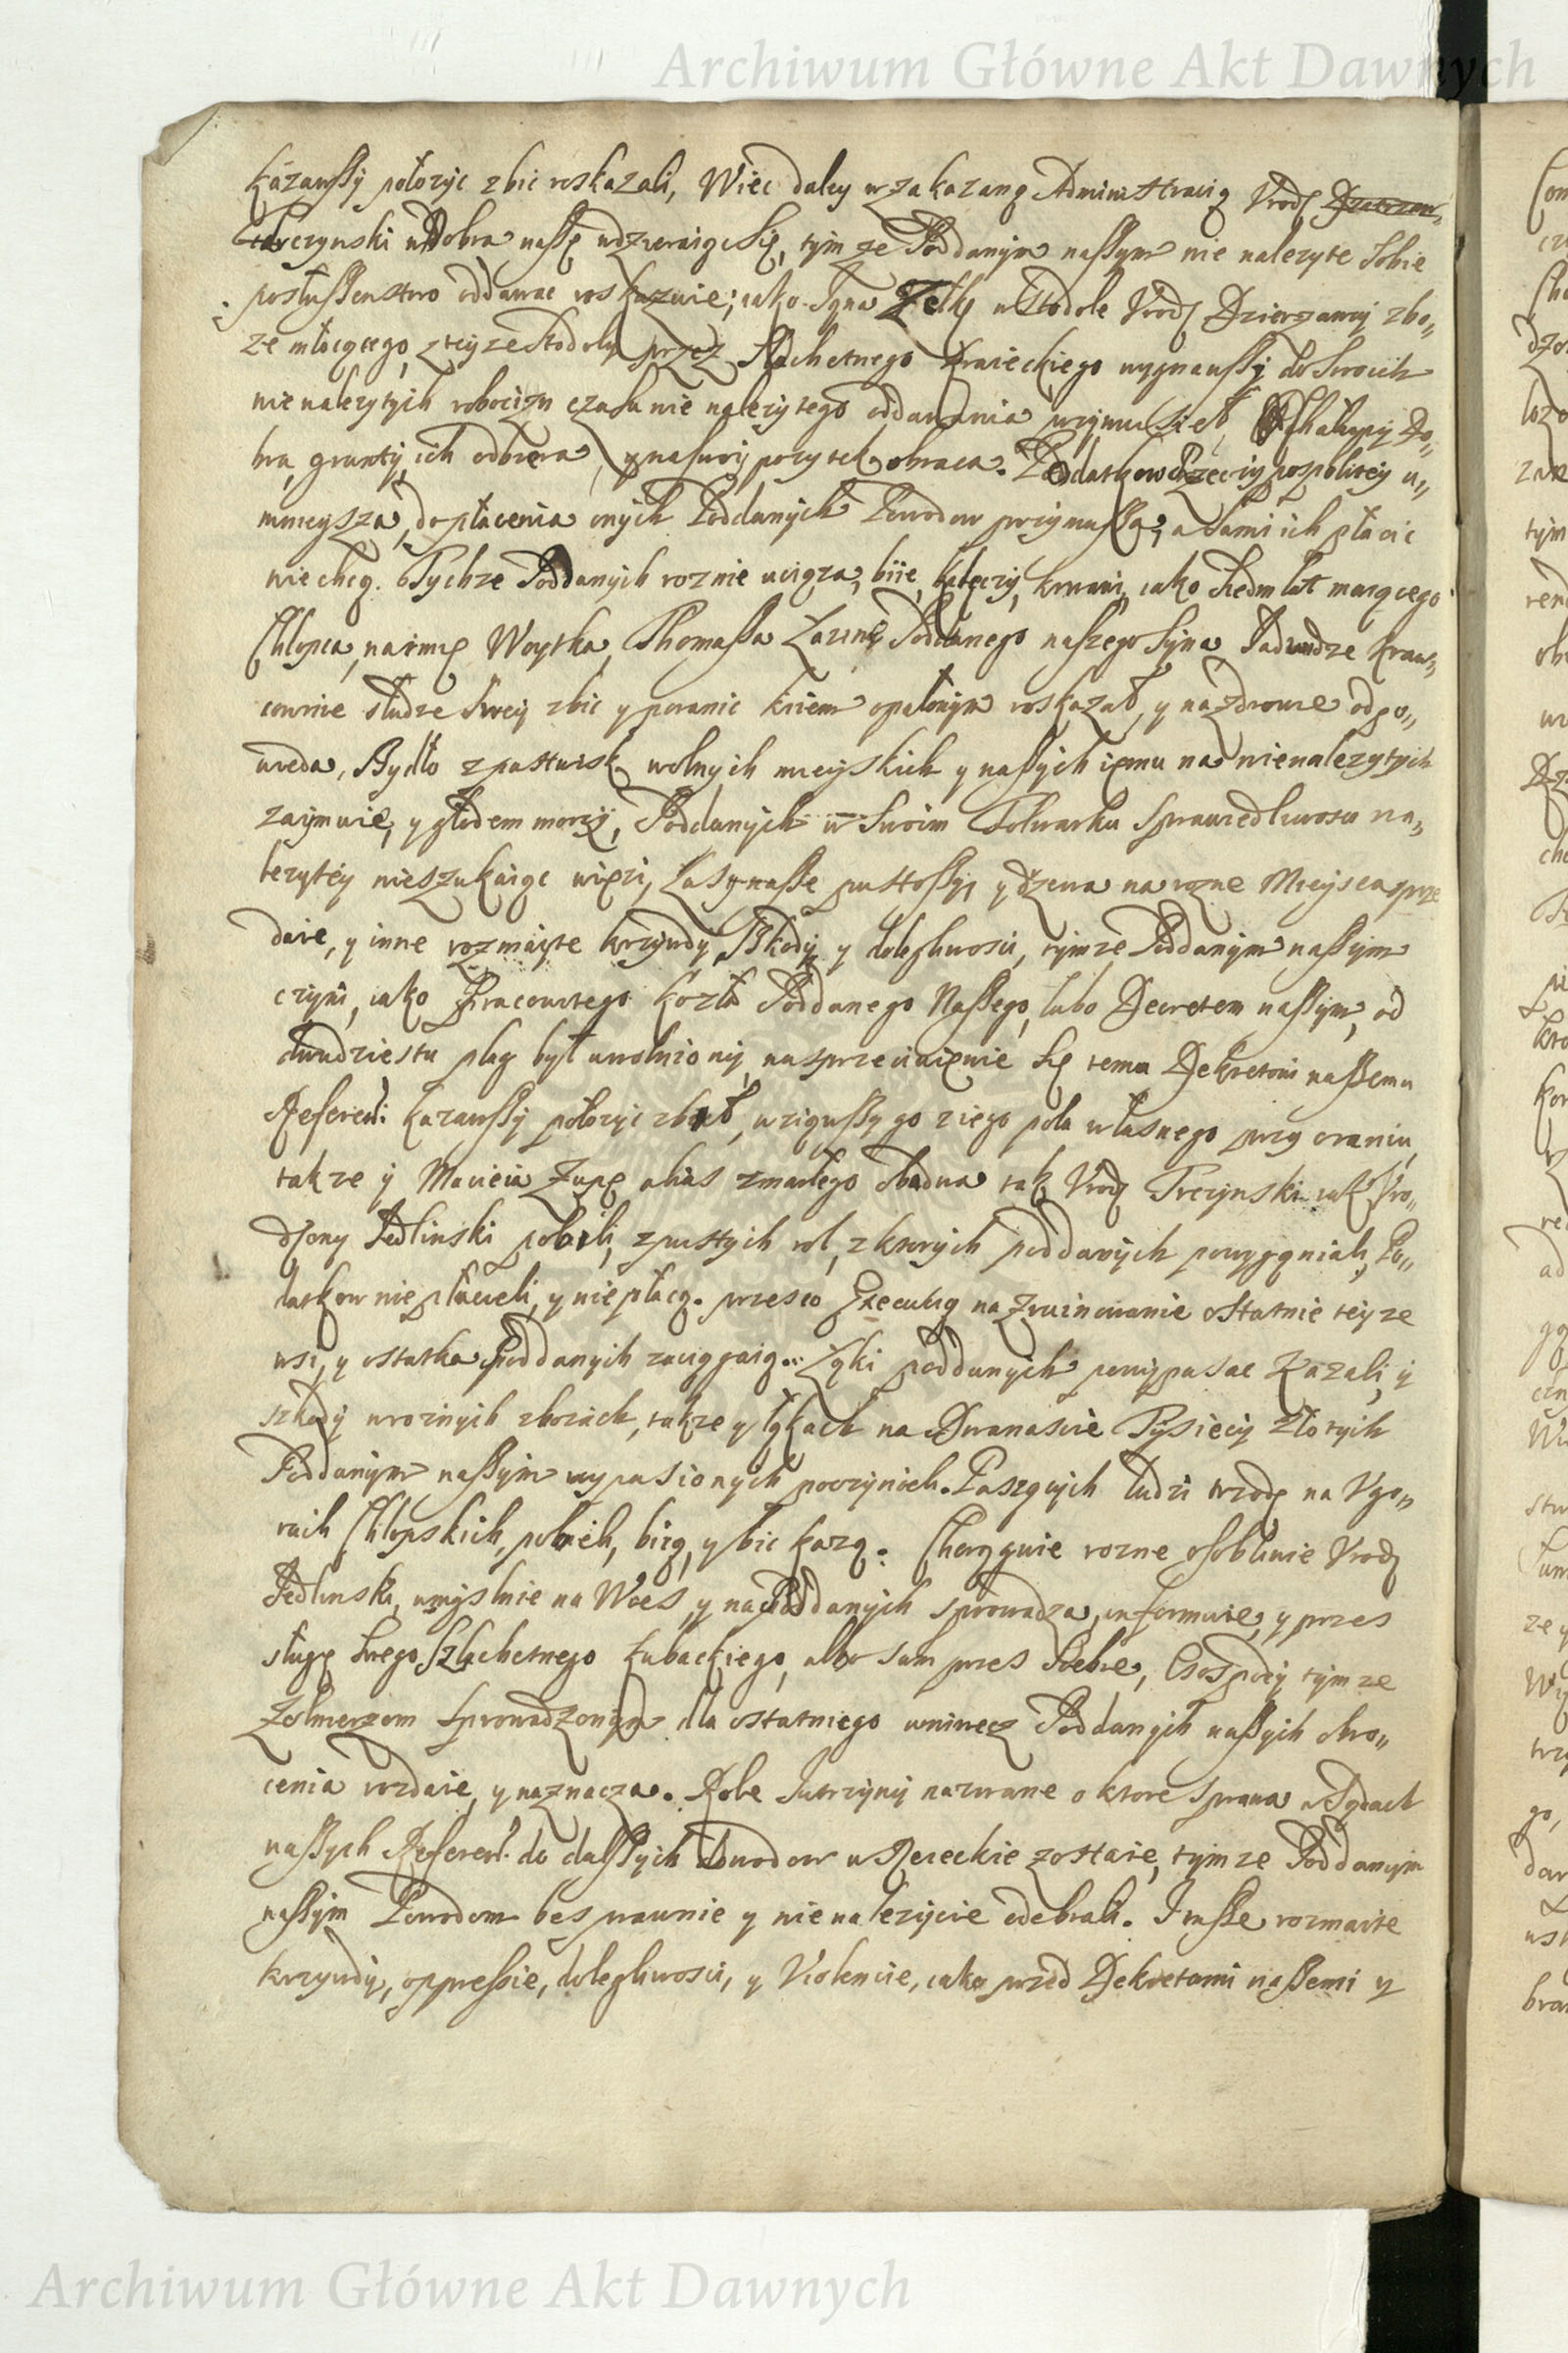 Archiwum Główne Akt Dawnych
Kazawszy położyc zbic roskazali, Więc daley w zakazaną Administracią Urod
Trczynski w Dobra nasze wdzieraiąc się, tym ze Poddanym naszym nie nalezyte sobie
posłuszenstwo oddawac roskazuie, iako Igna w Stodole Urod Dzierzawcy zbo„
ze młocącego, z teyze Stodoły przez Szlachetnego Kraieckiego wygnawszy do Swoich
nie nalezytych robocizn czasu nie nalezytego oddawania Chałupy Do„
bra, grunty ich odbiera, y na swoy pozytek obraca. Podatkow Rzeczyypospolitey u„
mnieysza, do płacenia onych Poddanych Powodow przymusza, a Sami ich płacic
nie chcą. Tychze Poddanych roznie uciąza, biie, kaleczy, krwawi, iako Siedm lat maiącego
Chłopca, na imię Woytka, Thomasza Poddanego naszego Syna
słudze Swey zbic y poranic kiiem opalonym roskazał, y na zdrowie odpo„
wieda, Bydło z pastwisk wolnych mieyskich y naszych iemu na nienalezytych
zaymuie, y głodem morzy, Poddanych w Swoim Folwarku Sprawiedliwosci na„
lezytey nieszukaiąc więzi, Lasy nasze pustoszy, y drzewa na rozne Mieysca prze
daie, y inne rozmaite krzywdy, Szkody y dolegliwosci, tym ze Poddanym naszym
czyni, iako Pracowitego Kozła Poddanego Naszego, lubo Decretem naszym, od
dwudziestu plag był uwolniony, na sprzeciwienie się temu Dekretowi naszemu
Referen: kazawszy położyc zbił, wziąwszy go z iego pola własnego przy oraniu,
takze y Macieia Zupę alias zmarłego Obadwa tak Urod Trczynski iak Uro„
dzony Jedlinski pobili, z pustych rol, z ktorych poddanych powyganiali, Po„
datkow nie płacieli, y nie płacą. przes co Executią na zruinowanie ostatnie teyze
wsi, y ostatka poddanych zaciągaią. Łąki poddanych powypasac Kazali, y
szkody w roznych zbozach, takze y łąkach na Dwanascie Tysięcy złotych
Poddanym naszym wypasionych poczynieli. Paszących ludzi trzodę na Ugo„
rach Chłopskich, pobieli, biią, y bic kazą. Chorągwie rozne osobliwie Urodz
Jedlinski, umyslnie na Wies, y na Poddanych sprowadza, informuie, y przes
sługę swego Szlachetnego Łubackiego, albo sam przes Siebie, Gospody tym ze
Zołnierzom Sprowadzonym dla ostatniego wniwecz Poddanych naszych obro„
cenia rozdaie, y naznacza. Role Jutrzyny nazwane o ktore Sprawa w Sądach
naszych Referen. do dalszych dowodow w Rececie zostaie, tym ze Poddanym
naszym Powodom bes prawnie y nie nalezycie odebrali. Insze rozmaite
krzywdy, oppressie, dolegliwosci, y Violencie, iako przed Dekretami naszemi y
Archiwum Główne Akt Dawnych